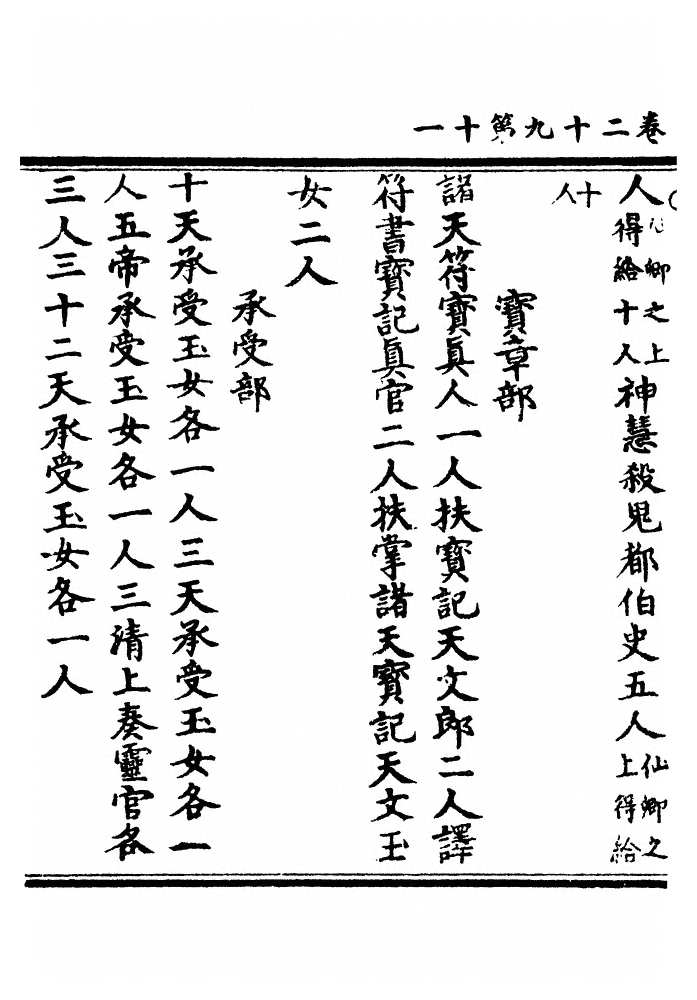 卷二十九第十一
人卿之上得給十人神慧殺鬼都伯史五人仙卿之上得給
十人
寶章部
諸天符寶眞人一人扶寶記天文郎二人譯
符書寶記眞官二人扶掌諸天寶記天文玉
女二人
承受部
十天承受玉女各一人三天承受玉女各一
人五帝承受玉女各一人三清上奏靈官各
三人三十二天承受玉女各一人